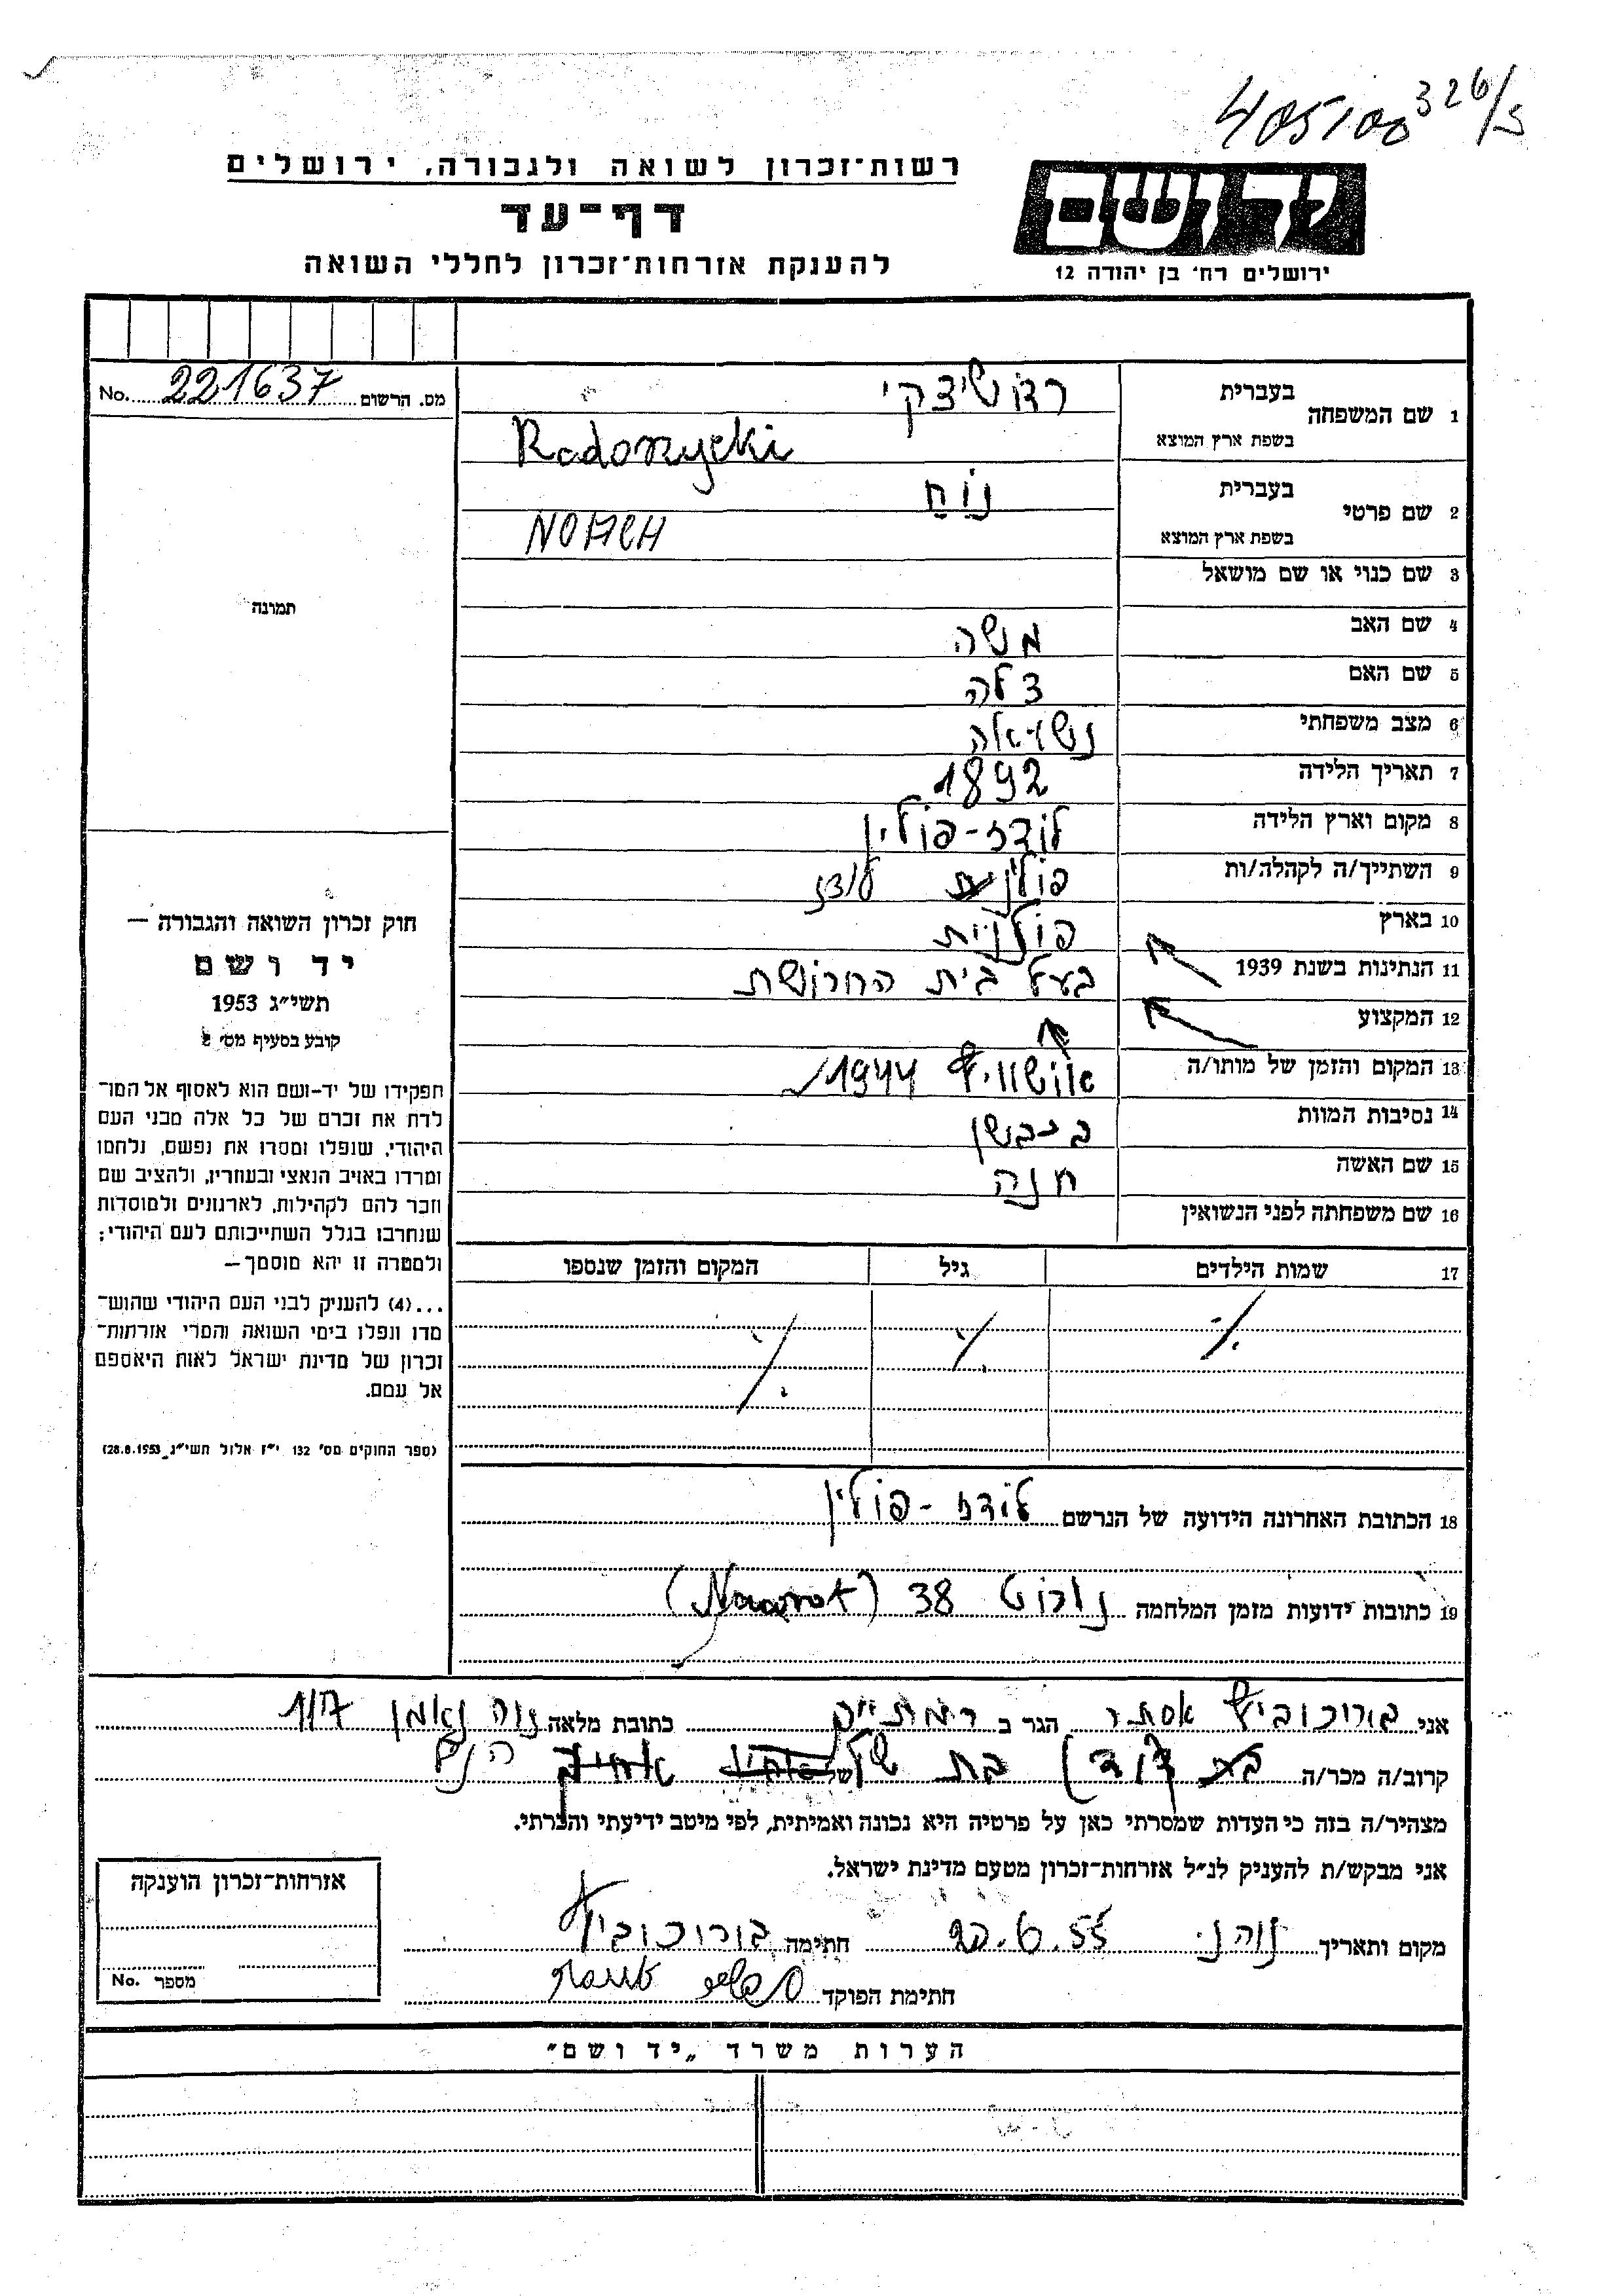 405100 326/5
רשות־זכרון לשואה ולגבורה, ירושלים
דף־עד
להענקת אזרחות־זכרון לחללי השואה
ידושם
ירושלים רח' בן יהודה 12
מס. הרשום 221637 No.
1 שם המשפחה בעברית רדושיצקי
בשפת ארץ המוצא Radoszycki
2 שם פרטי בעברית נוח
בשפת ארץ המוצא NOACH
3 שם כנוי או שם מושאל
4 שם האב משה
5 שם האם צלה
6 מצב משפחתי
7 תאריך הלידה 1892
8 מקום וארץ הלידה לודז - פולין
9 השתייך/ה לקהלה/ות לודז
10 בארץ פולנית
11 הנתינות בשנת 1939 בעל בית החרושת
12 המקצוע
13 המקום והזמן של מותו/ה אושוויץ 1944
14 נסיבות המוות בכבשן
15 שם האשה חנה
16 שם משפחתה לפני הנשואין
17 שמות הילדים גיל המקום והזמן שנספו
./. ./. ./.
18 הכתובת האחרונה הידועה של הנרשם לודז - פולין
19 כתובות ידועות מזמן המלחמה נורוט 38
תמונה
חוק זכרון השואה והגבורה —
יד ושם
תשי״ג 1953
קובע בסעיף מס׳ 2
תפקידו של יד-ושם הוא לאסוף אל המו־
לדת את זכרם של כל אלה מבני העם
היהודי, שנפלו ומסרו את נפשם, נלחמו
ומרדו באויב הנאצי ובעוזריו, ולהציב שם
וזכר להם לקהילות, לארגונים ולמוסדות
שנחרבו בגלל השתייכותם לעם היהודי;
ולמטרה זו יהא מוסמך —
...(4) להעניק לבני העם היהודי שהוש־
מדו ונפלו בימי השואה והמרי אזרחות־
זכרון של מדינת ישראל לאות היאספם
אל עמם.
(ספר החוקים מס׳ 132 י״ז אלול תשי״ג 28.8.1953)
אני בורוכוביץ אסתר הגר ב כתובת מלאה נוה נאמן
קרוב/ה מכר/ה בת של
מצהיר/ה בזה כי העדות שמסרתי כאן על פרטיה היא נכונה ואמיתית, לפי מיטב ידיעתי והכרתי.
אני מבקש/ת להעניק לנ״ל אזרחות־זכרון מטעם מדינת ישראל.
מקום ותאריך נוה נ. 20.6.55 חתימה בורוכוביץ
חתימת הפוקד
אזרחות־זכרון הוענקה
מספר No.
הערות משרד „יד ושם״